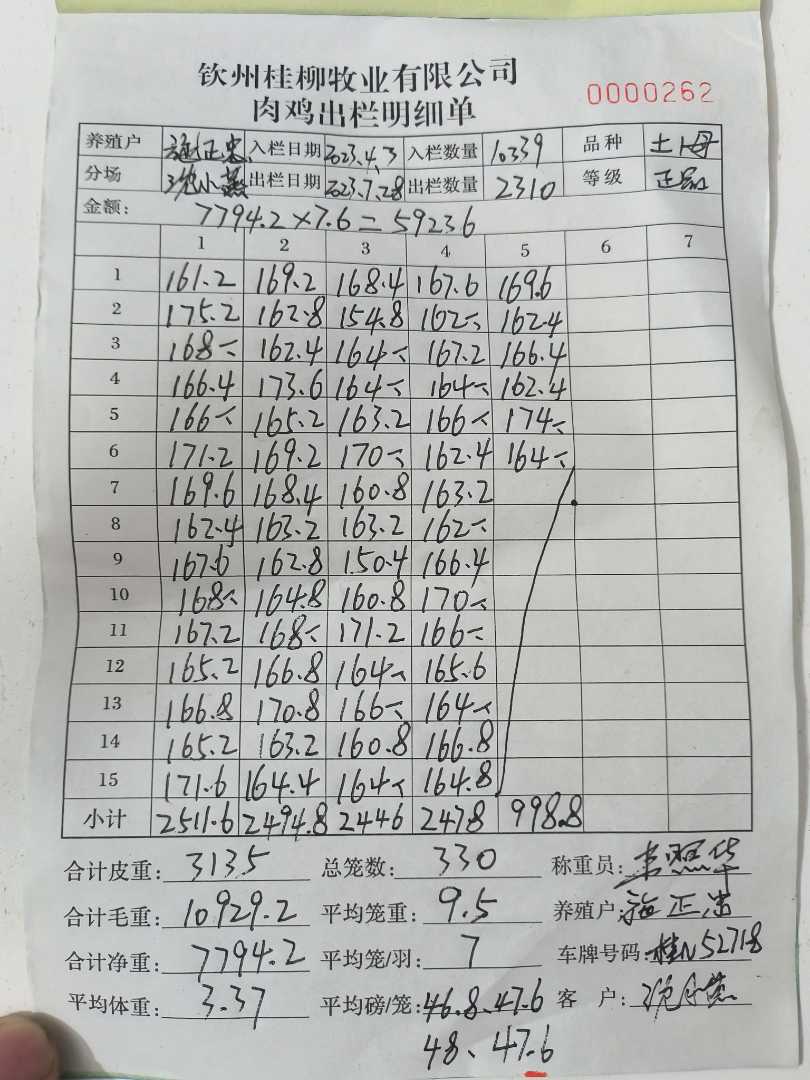 钦州桂柳牧业有限公司
肉鸡出栏明细单
0000262
养殖户 施正忠 入栏日期 2023.4.3 入栏数量 10339 品种 土1母
分场 出栏日期 2023.7.28 出栏数量 2310 等级 正品
金额: 7794.2×7.6=59236
1 2 3 4 5 6 7
1 161.2 169.2 168.4 167.6 169.6
2 175.2 162.8 154.8 162 162.4
3 168 162.4 164 167.2 166.4
4 166.4 173.6 164 164 162.4
5 166 165.2 163.2 166 174
6 171.2 169.2 170 162.4 164
7 169.6 168.4 160.8 163.2
8 162.4 163.2 163.2 162
9 167.6 162.8 150.4 166.4
10 168 164.8 160.8 170
11 167.2 168 171.2 166
12 165.2 166.8 164 165.6
13 166.8 170.8 166 164
14 165.2 163.2 160.8 166.8
15 171.6 164.4 164 164.8
小计 2511.6 2494.8 2446 2478 998.8
合计皮重: 3135 总笼数: 330 称重员:
合计毛重: 10929.2 平均笼重: 9.5 养殖户: 施正忠
合计净重: 7794.2 平均笼/羽: 7 车牌号码: 桂N52718
平均体重: 3.37 平均磅/笼: 46.8、47.6 客户:
48、47.6